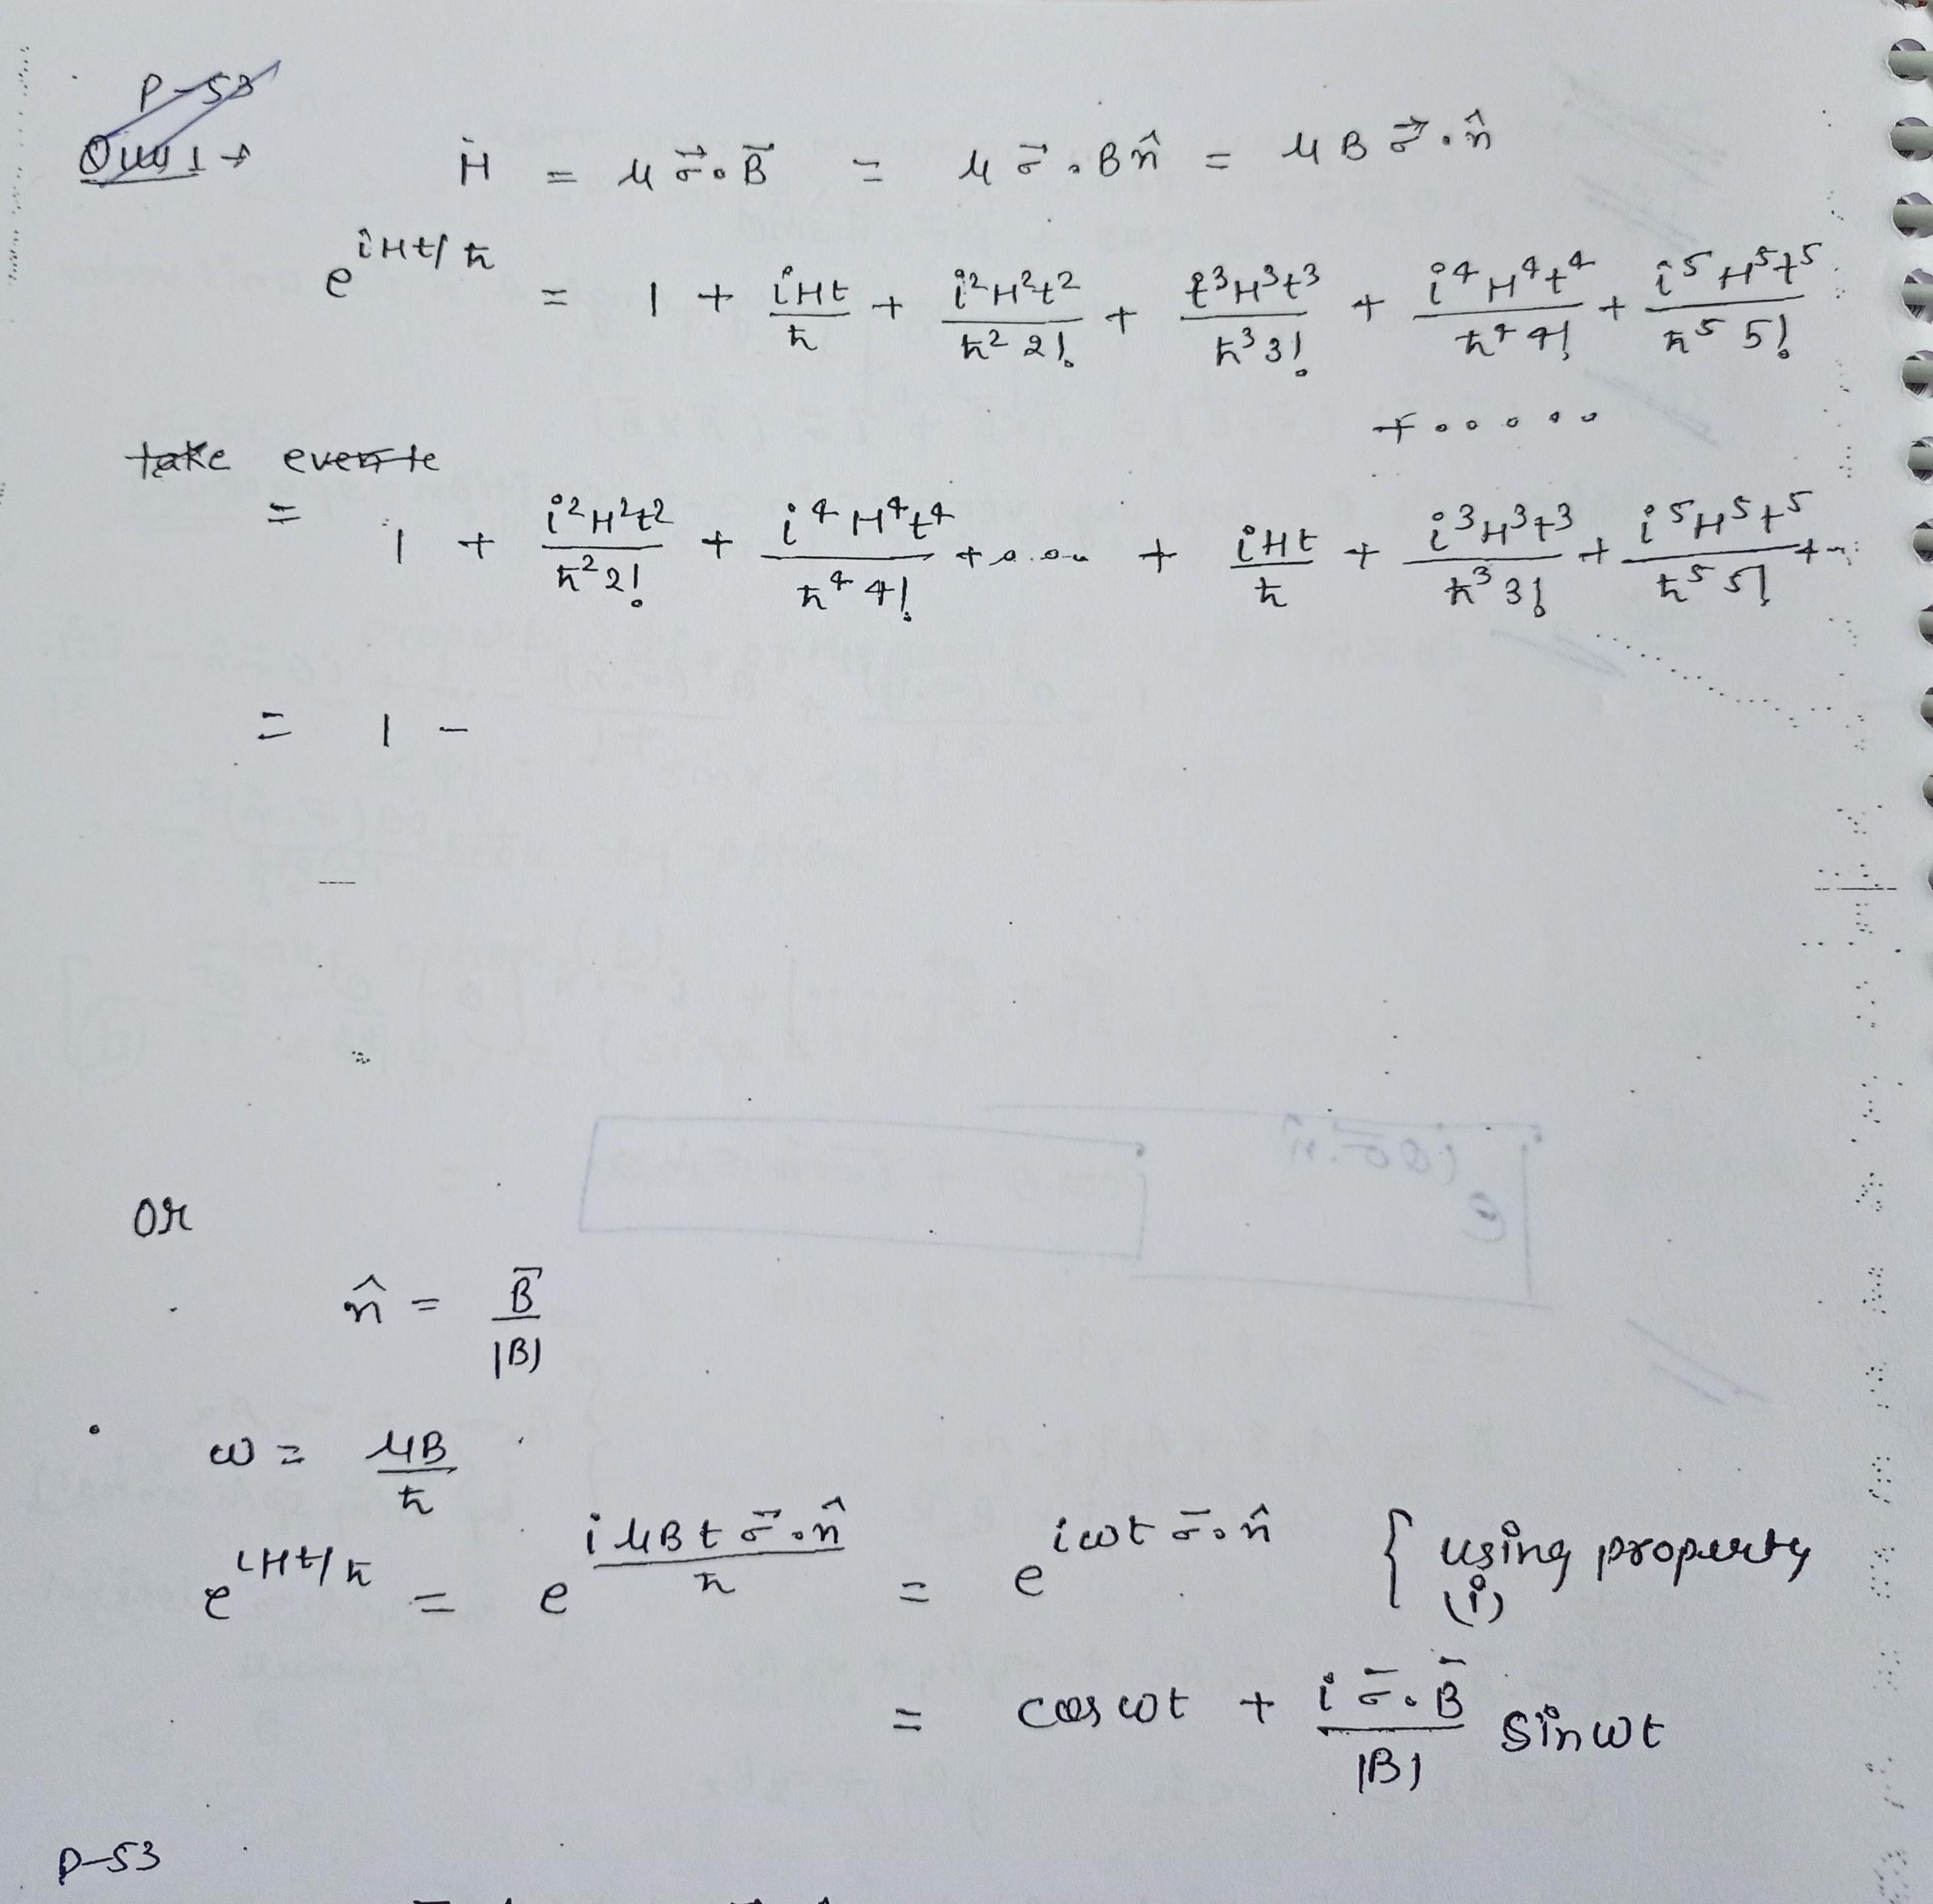 P-53
Ques 1 →
H = μ σ⃗.B⃗ = μ σ⃗.Bn̂ = μ B σ⃗.n̂
e^{iHt/ħ} = 1 + iHt/ħ + i²H²t²/ħ² 2! + i³H³t³/ħ³ 3! + i⁴H⁴t⁴/ħ⁴ 4! + i⁵H⁵t⁵/ħ⁵ 5!
+ .....
take evente
= 1 + i²H²t²/ħ² 2! + i⁴H⁴t⁴/ħ⁴ 4! + .... + iHt/ħ + i³H³t³/ħ³ 3! + i⁵H⁵t⁵/ħ⁵ 5! + ..
= 1 -
or
n̂ = B⃗/|B|
ω = μB/ħ
e^{iHt/ħ} = e^{iμBt σ⃗.n̂/ħ} = e^{iωt σ⃗.n̂} { using property
(i)
= cos ωt + i σ⃗.B⃗/|B| sin ωt
P-53